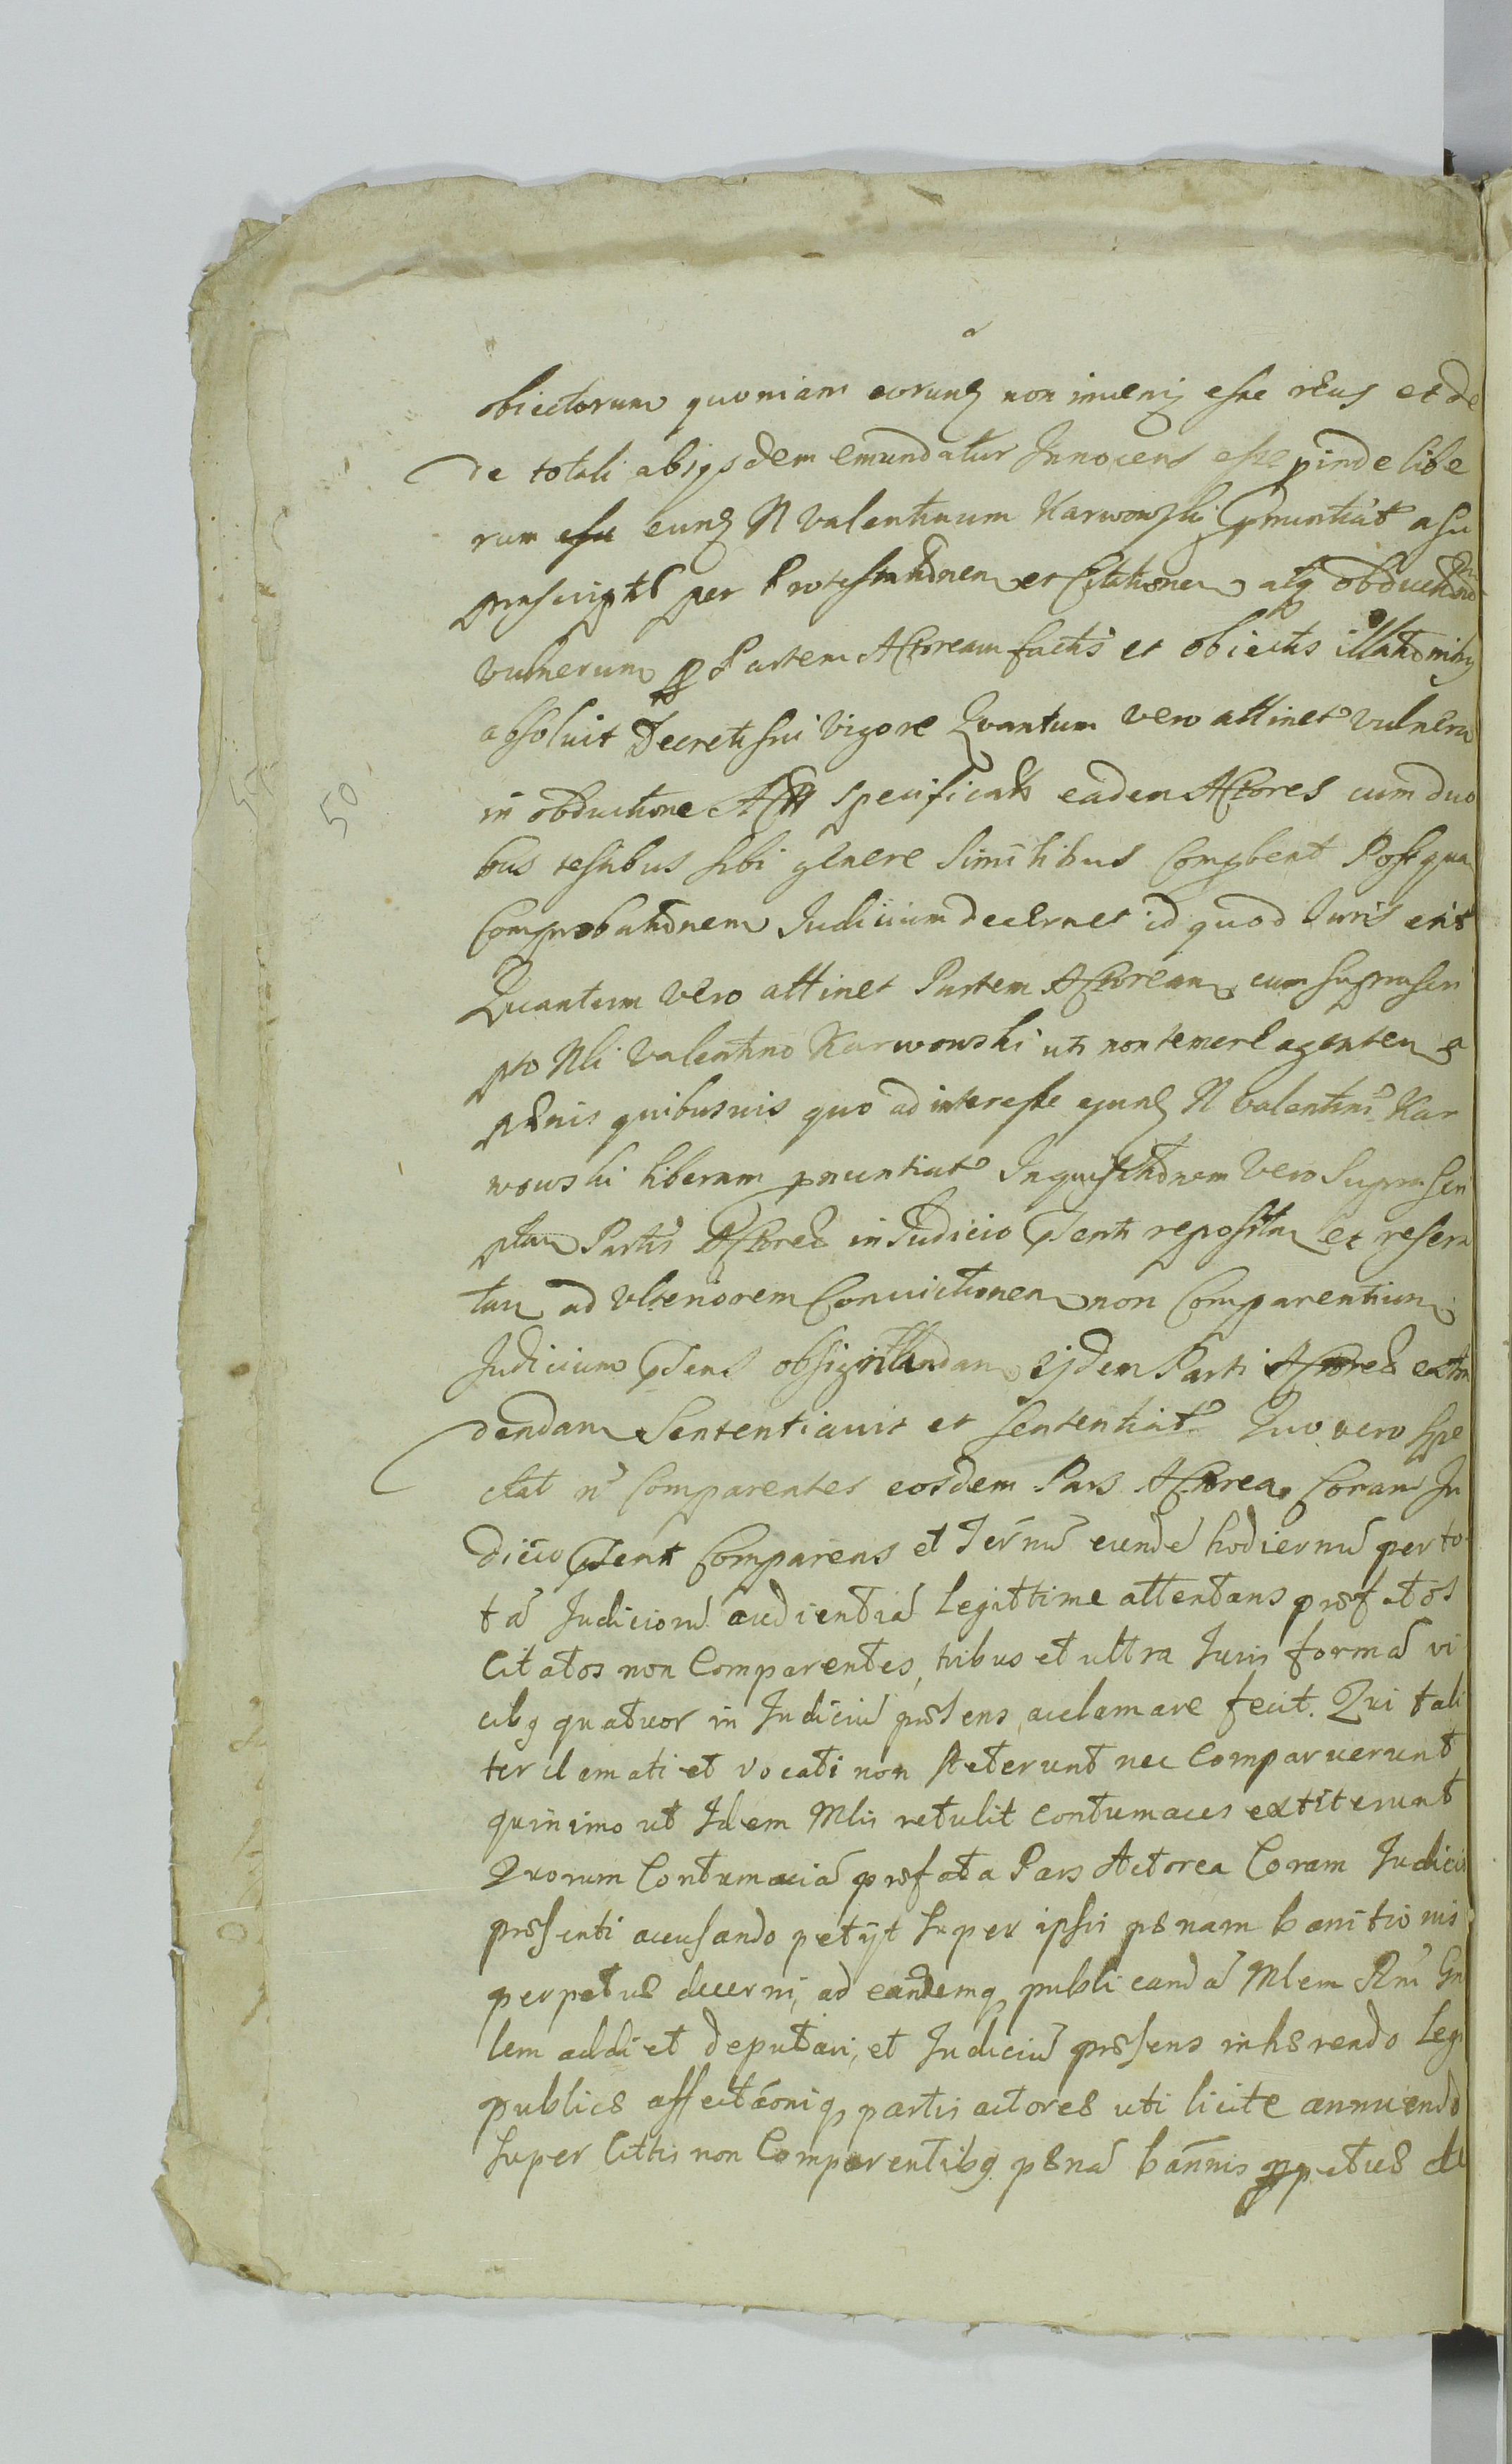 obiectorum quoniam eorund non invenit esse reus et de
de totali abijsdem emundatur Innocens esse pinde libe
rum esse eund N Valentinum Karwowski pnuntiat a su
prascriptis per Protestationem et Citationem atq obductionem
vulnerum p Partem Actoream factis et obiectis illationibus
absoluit Decreti sui vigore Quantum vero attinet vulnera
in obductione Actis specificata eadem Actores cum duo
bus testibus sibi genere similibus comprobent Post quam
Comprobationem Judicium decernet id quod Juris erit
Quantum vero attinet Partem Actoream cum suprascri
pto Nli Valentino Karwowski uti non temere agentem a
pænis quibusuis quo ad interesse ejund N Valentini Kar
wowski liberam pnuntiat Inquisitionem vero suprascri
ptam Partis Actoreæ in Judicio psenti repositam et resera
tam ad vlteriorem Conuictionem non Comparentium
Judicium psens obsigillandam ejdem Parti Actoreæ extra
dendam Sententiauit et sententiat Quo vero spe
ctat n Comparentes eosdem Pars Actorea Coram Ju
dicio psenti Comparens et Terminu eunde hodiernu per to
ta Judicioru audientia legittime attentans præfatos
Citatos non Comparentes, tribus et ultra Juris forma vi
cibq quatuor in Judiciu præsens acclamare fecit. Qui tali
ter clemati et vocati non steterunt nec Comparuerunt
quinimo ut Idem Mlis retulit contumaces extiterunt
Quorum Contumacia præfata Pars Actorea Coram Judicio
præsenti accusando petijt super ipsis pænam banitionis
perpetuæ decerni, ad eandemq publicanda Mlem Rni Gn
lem addi et deputari, et Judiciu præsens inhærendo Legi
publicæ affectaoniq partis actoreæ uti licite annuendo
super Cittis non Comparentibq pæna bannis ppetuæ de
50